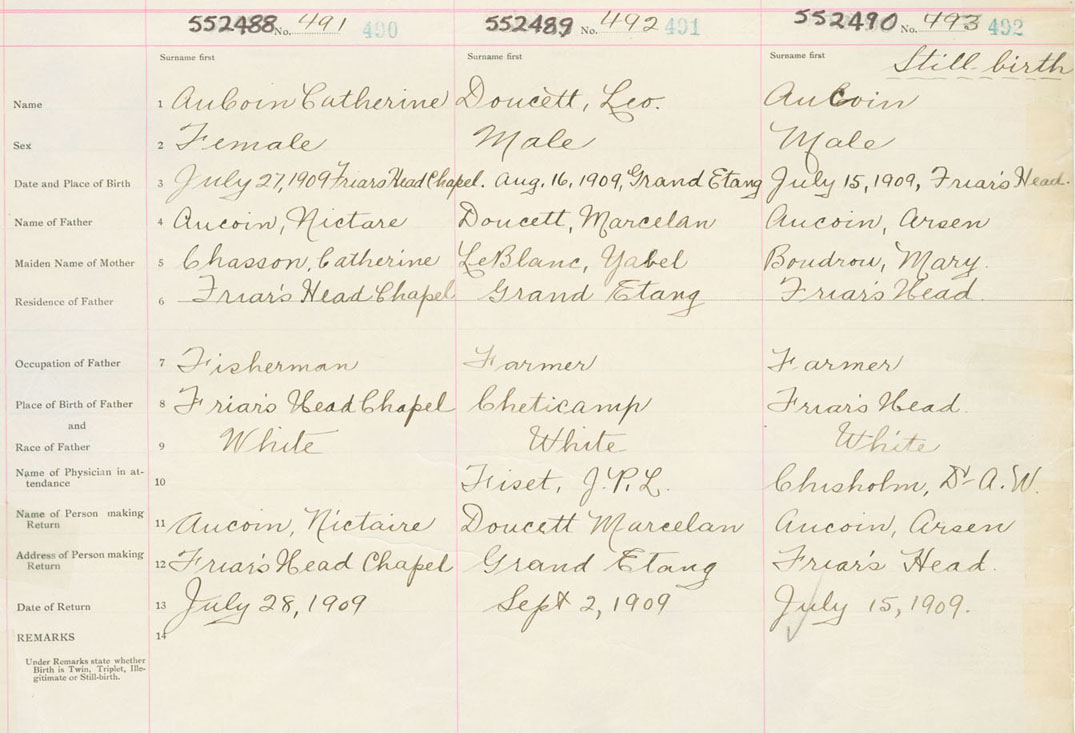 552488 No. 491 490 552489 No. 492 491 552490 No. 493 492
Surname first Surname first Surname first Still-birth
Name 1 AuCoin Catherine Doucett, Leo. AuCoin
Sex 2 Female Male Male
Date and Place of Birth 3 July 27, 1909 Friar's Head Chapel. Aug. 16, 1909, Grand Etang July 15, 1909, Friar's Head.
Name of Father 4 Aucoin, Nictare Doucett, Marcelan Aucoin, Arsen
Maiden Name of Mother 5 Chasson, Catherine LeBlanc, Yabel Boudrou, Mary.
Residence of Father 6 Friar's Head Chapel Grand Etang Friar's Head.
Occupation of Father 7 Fisherman Farmer Farmer
Place of Birth of Father 8 Friar's Head Chapel Cheticamp Friar's Head.
and
Race of Father 9 White White White
Name of Physician in at-
tendance 10 Fiset, J. P. L. Chisholm, Dr A. W.
Name of Person making
Return 11 Aucoin, Nictaire Doucett Marcelan Aucoin, Arsen
Address of Person making
Return 12 Friar's Head Chapel Grand Etang Friar's Head.
Date of Return 13 July 28, 1909 Sept 2, 1909 July 15, 1909.
REMARKS 14
Under Remarks state whether
Birth is Twin, Triplet, Ille-
gitimate or Still-birth.